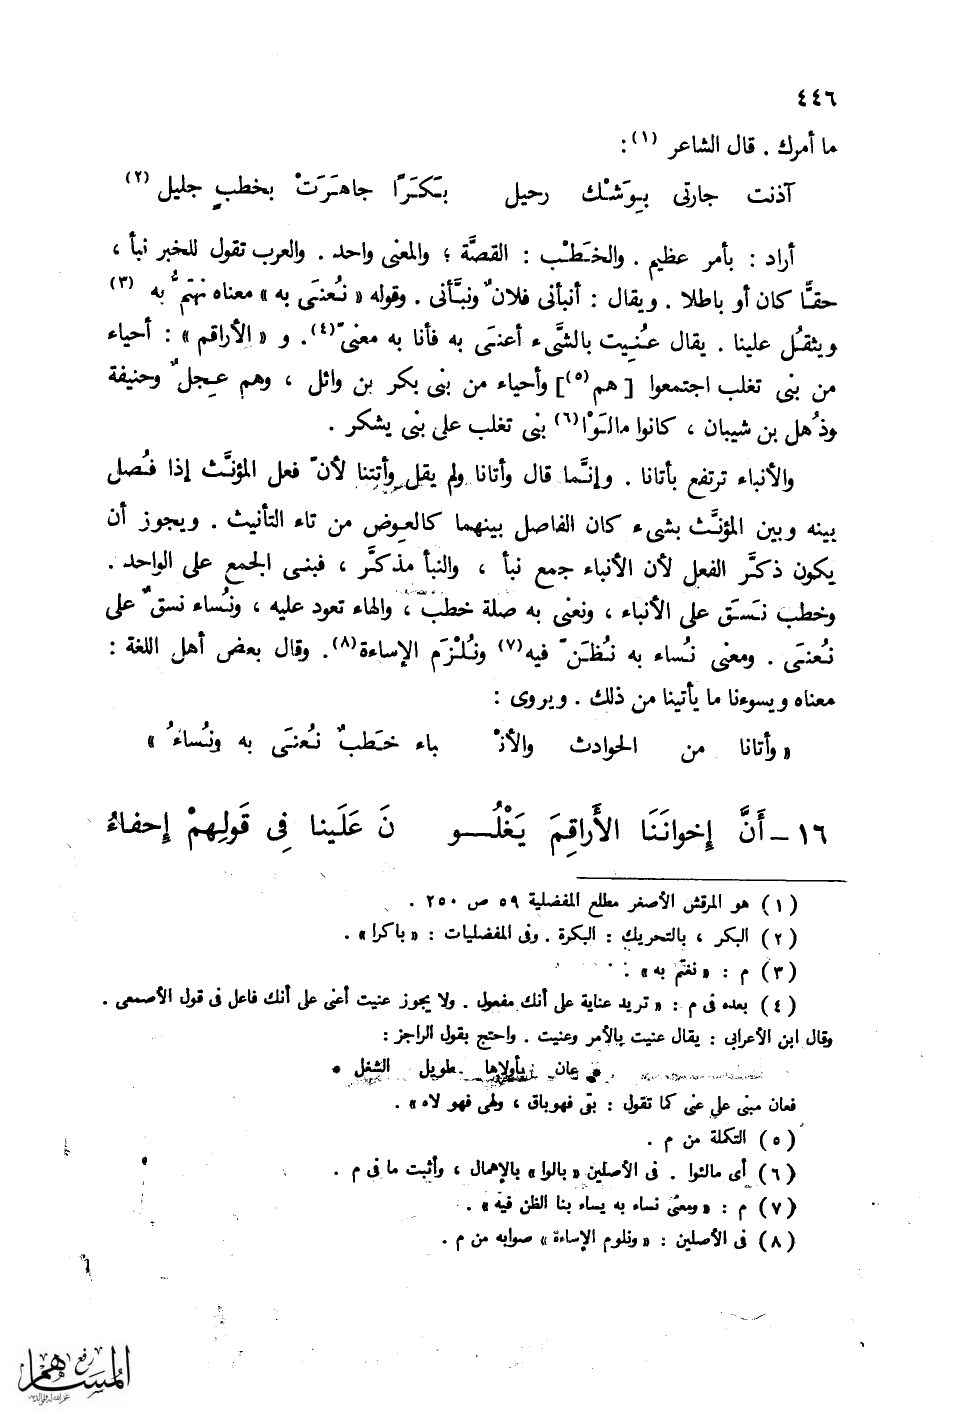 ٤٤٦
ما أمرك . قال الشاعر (١) :
آذنت جارتى بِوَشْك رحيل بَكَرًا جاهَرَتْ بخطبٍ جليل (٢)
أراد : بأمر عظيم . والخَطْب : القصَّة ؛ والمعنى واحد . والعرب تقول للخبر نبأ ،
حقًّا كان أو باطلا . ويقال : أنبأنى فلانٌ ونبَّأنى . وقوله « نُعنَى به » معناه نهتمُّ به (٣)
ويثقُل علينا . يقال عُنِيت بالشَّىء أعنَى به فأنا به معنىّ (٤) . و « الأراقم » : أحياء
من بنى تغلب اجتمعوا [ هم (٥) ] وأحياء من بنى بكر بن وائل ، وهم عجلٌ وحنيفة
وذُهل بن شيبان ، كانوا مالَوْا (٦) بنى تغلب على بنى يشكر .
والأنباء ترتفع بأتانا . وإنَّما قال وأتانا ولم يقل وأتتنا لأنّ فعل المؤنَّث إذا فُصل
بينه وبين المؤنَّث بشىء كان الفاصل بينهما كالعِوض من تاء التأنيث . ويجوز أن
يكون ذكَّر الفعل لأن الأنباء جمع نبأ ، والنبأ مذكَّر ، فبنى الجمع على الواحد .
وخطب نَسَق على الأنباء ، ونعنى به صلة خطب ، والهاء تعود عليه ، ونُساء نسقٌ على
نُعنَى . ومعنى نُساء به نُظَنّ فيه (٧) ونُلْزَم الإساءة (٨) . وقال بعض أهل اللغة :
معناه ويسوءنا ما يأتينا من ذلك . ويروى :
« وأتانا من الحوادث والأنْ باء خَطبٌ نُعنَى به ونُساءُ »
١٦ – أَنَّ إخوانَنَا الأَراقِمَ يَغْلُو نَ عَلَينا فِى قَولِهمْ إحفاءُ
(١) هو المرقش الأصغر مطلع المفضلية ٥٩ ص ٢٥٠ .
(٢) البكر ، بالتحريك : البكرة . وفى المفضليات : « باكرا » .
(٣) م : « نغتم به » .
(٤) بعده فى م : « تريد عناية على أنك مفعول . ولا يجوز عنيت أعنى على أنك فاعل فى قول الأصمعى .
وقال ابن الأعرابى : يقال عنيت بالأمر وعنيت . واحتج بقول الراجز :
* عان بأولاها طويل الشغل *
فعان مبنى على عنى كما تقول : بقى فهو باق ، ولهى فهو لاه » .
(٥) التكملة من م .
(٦) أى مالئوا . فى الأصلين « بالوا » بالإهمال ، وأثبت ما فى م .
(٧) م : « ومعنى نساء به يساء بنا الظن فيه » .
(٨) فى الأصلين : « ونلوم الإساءة » صوابه من م .